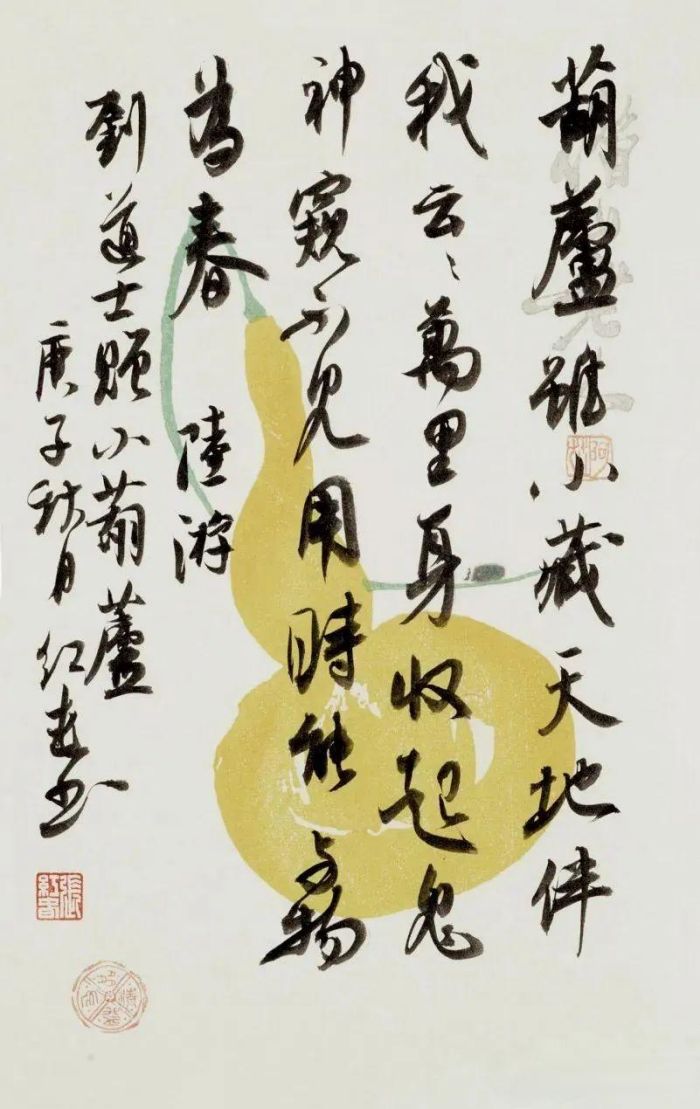 葫蘆雖小藏天地伴
我云〻萬里身收起鬼
神窺不見用時能與物
為春 陸游
劉道士贈小葫蘆
庚子秋月 红春书
張紅春